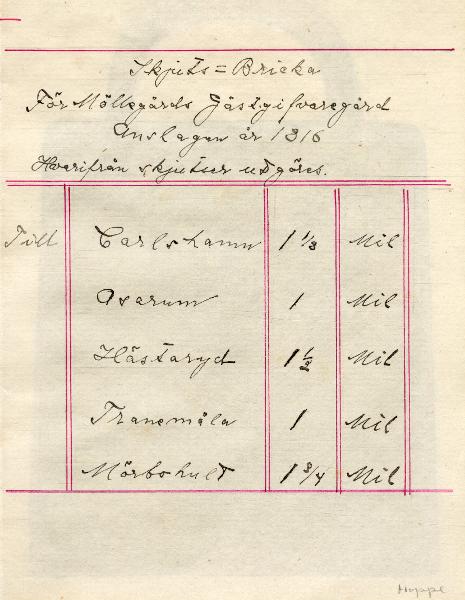 Skjuts=Bricka
För Möllegårds Gästgifvaregård
Anslagen år 1816
Hvarifrån skjutser utgöres.
Till Carlshamn 1 1/3 Mil
Asarum 1 Mil
Hästaryd 1 1/2 Mil
Tranemåla 1 Mil
Mörbohult 1 3/4 Mil
Hoppe